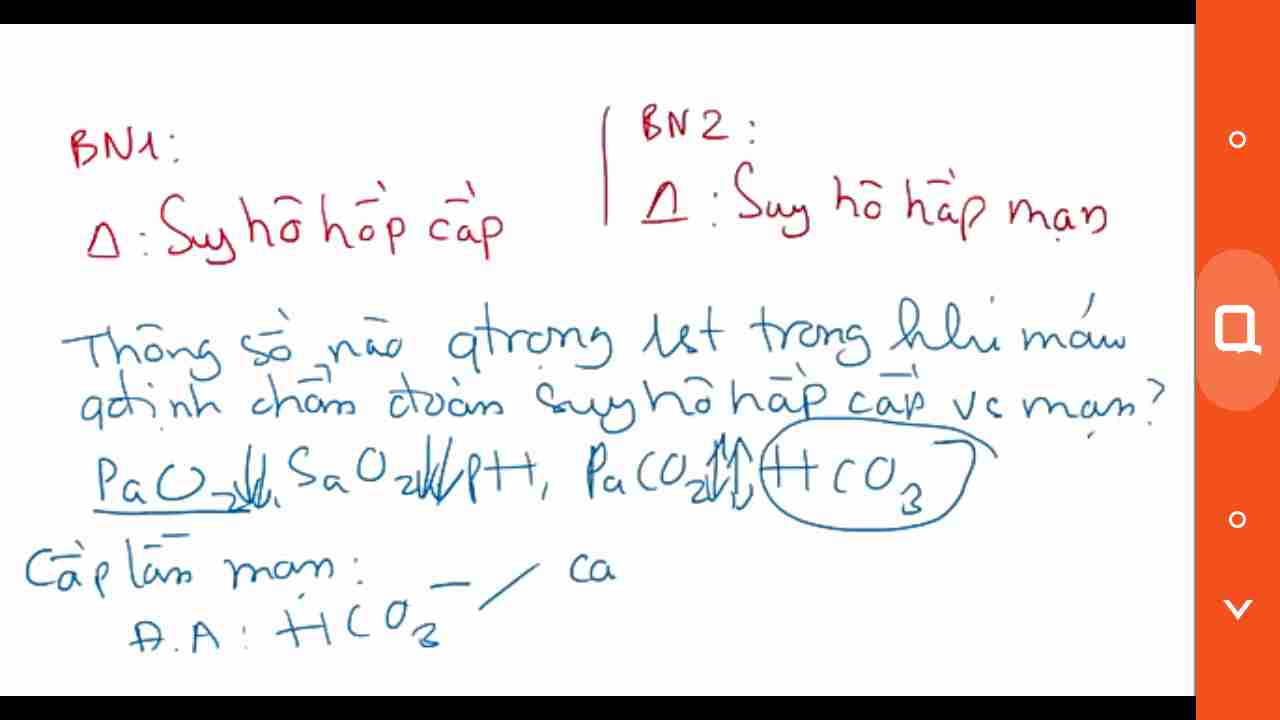 BN1:
Δ: Suy hô hấp cấp
BN2:
Δ: Suy hô hấp mạn
Thông số nào qtrọng 1st trong khí máu
qđịnh chẩn đoán suy hô hấp cấp vs mạn?
PaO2↓↓, SaO2↓↓ pH, PaCO2↑↑ HCO3
Cấp lẫn mạn:
A.A: HCO3⁻ / ca